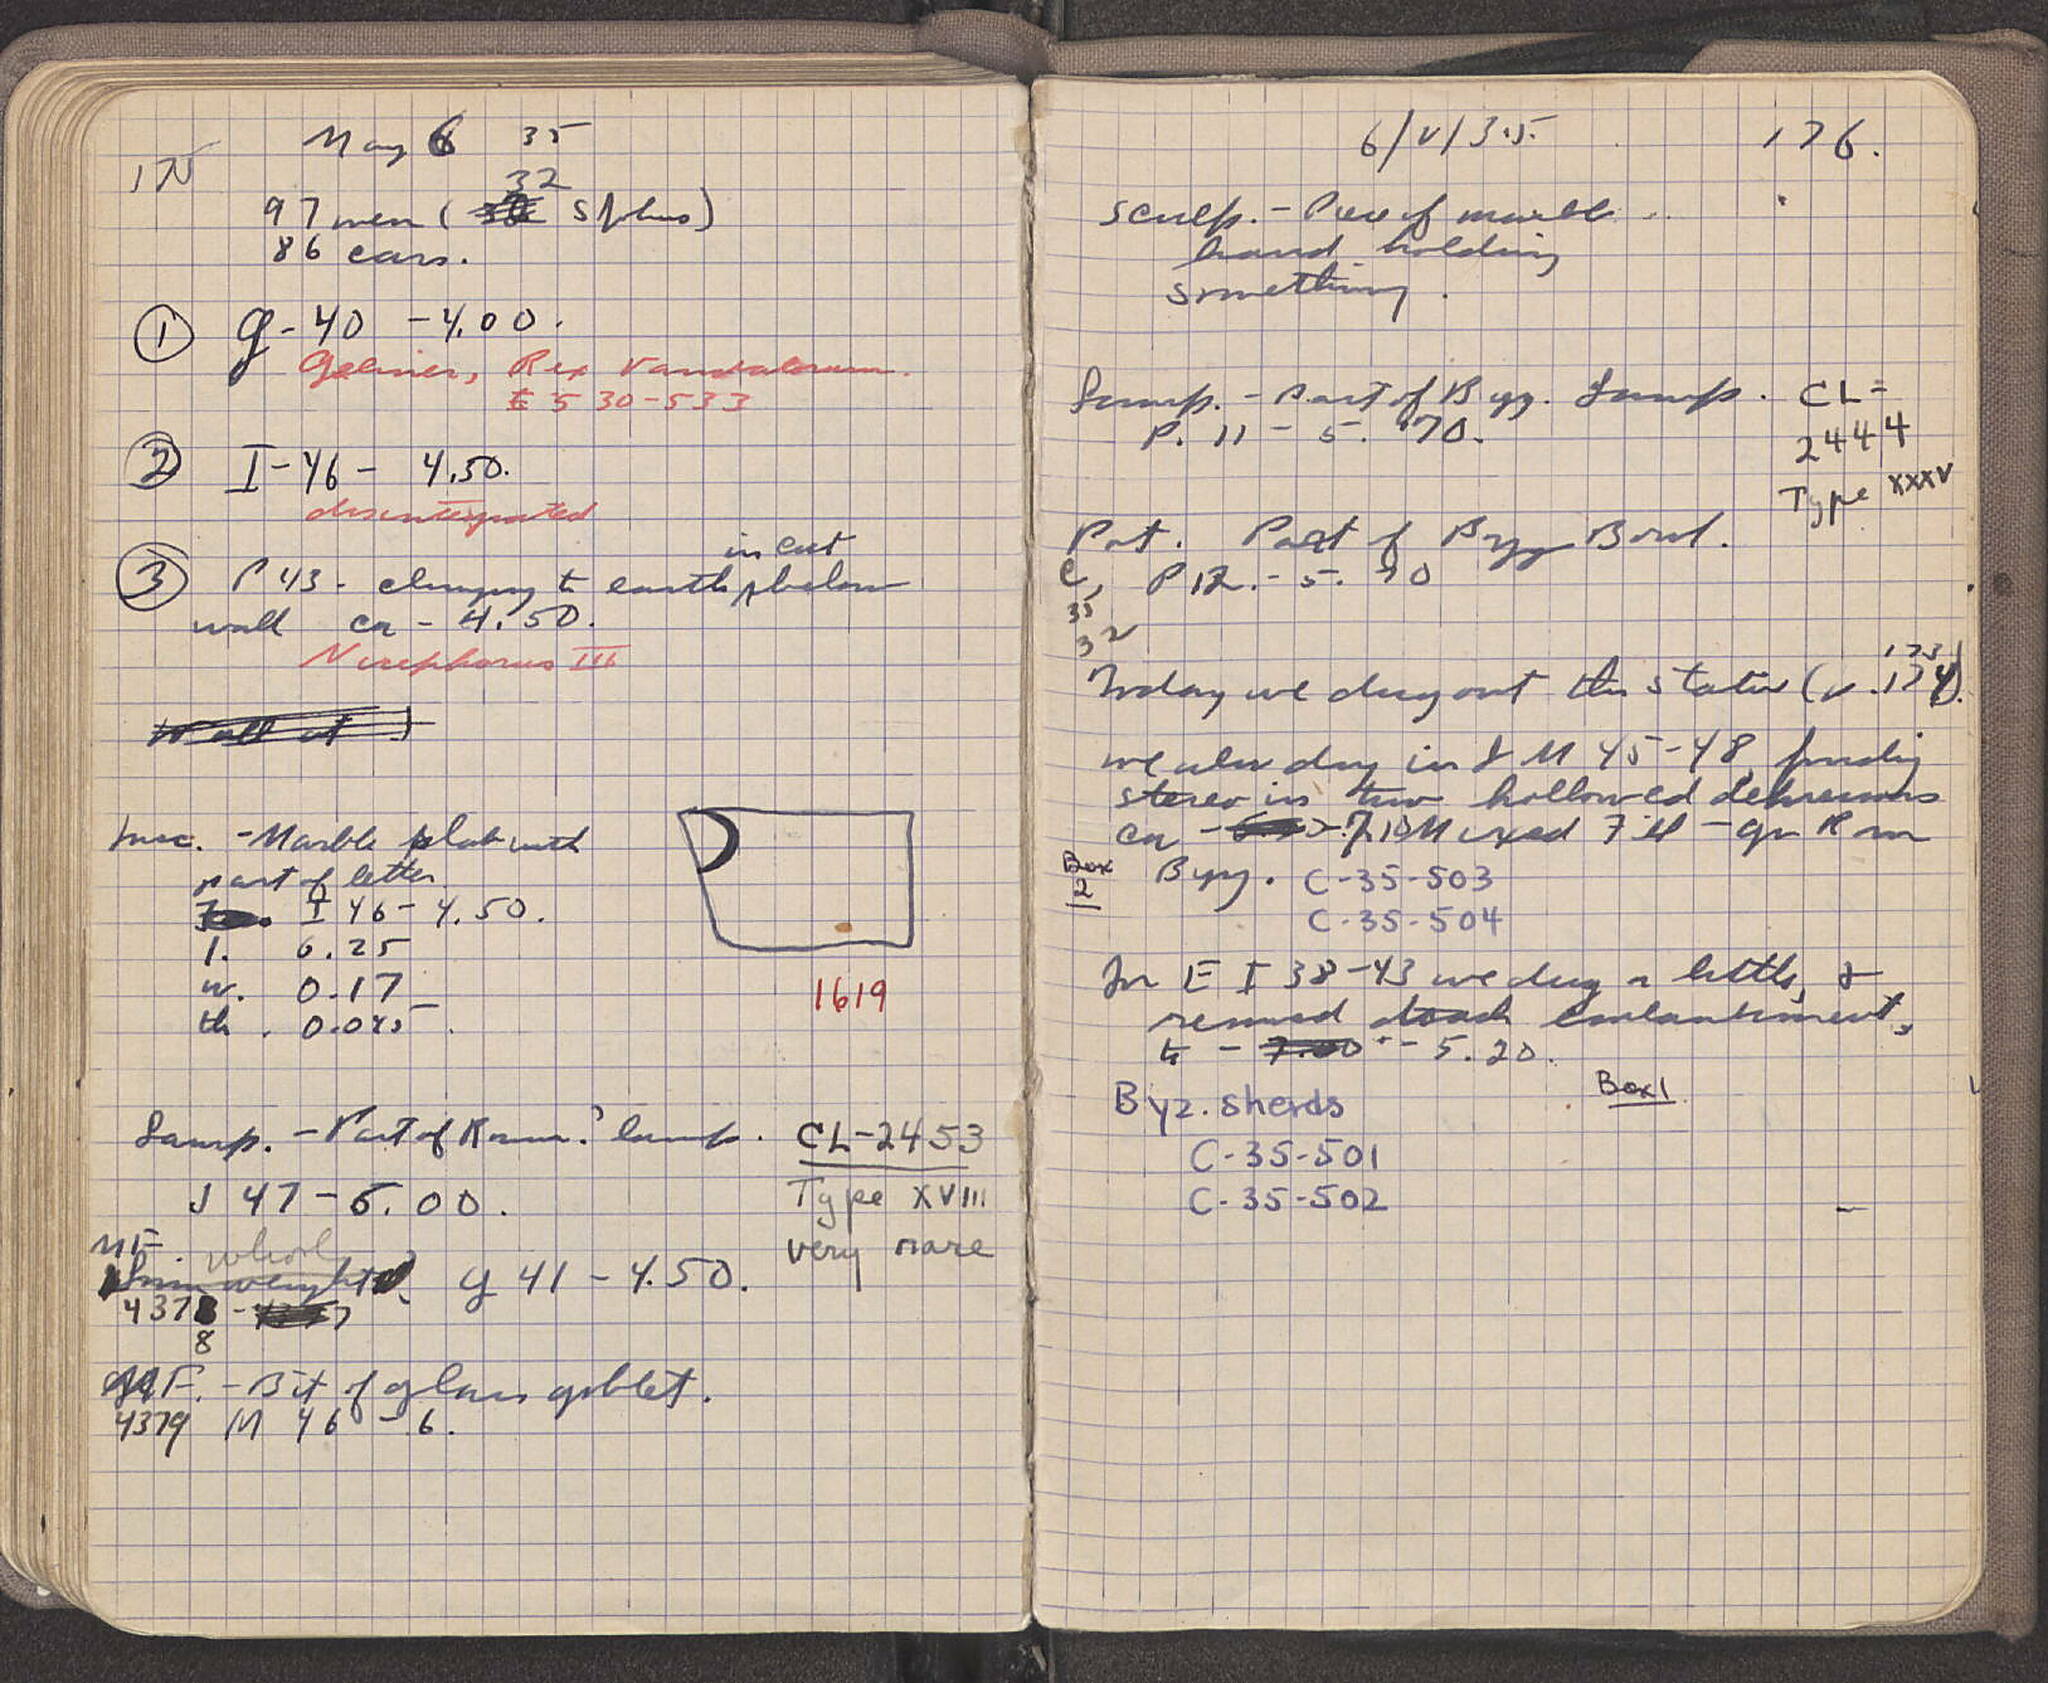 175
May 6 35
32
97 men ( Stylus)
86 cars.
① G-40 -4.00.
Gelimer, Rex Vandalorum.
530-533
② I-46- 4.50.
disintegrated
③ P 43 - clinging to earth in cut below
wall ca - 4.50.
Nicephorus III
Wall at
Insc. - Marble slab with
part of letter
I 46 - 4.50.
l. 0.25
w. 0.17
th. 0.045.
1619
Lamp. - Part of Rom.? lamp.
J 47 - 5.00.
CL-2453
Type XVIII
very rare
MF. whorl
Loom weight? G 41 - 4.50.
4378
8
MF. - Bit of glass goblet.
4379 M 46 - 6.
6/V/35.
176.
Sculp. - Piece of marble
hand holding
something.
Lamp. - Part of Byz. Lamp.
P. 11 - 5.70.
CL=
2444
Type XXXV
Pot. Part of Byz Bowl.
C, P 12. - 5.70
35
32
Today we dug out the statue (v. 173, 174).
we also dug in J M 45-48, finding
stereo in two hollowed depressions
ca - 7.10 Mixed Fill - Gr Rom
Byz.
Box
2
C-35-503
C-35-504
In E I 38-43 we dug a little, &
removed embankment,
to - 7.00 - 5.20.
Byz. sherds
Box 1
C-35-501
C-35-502